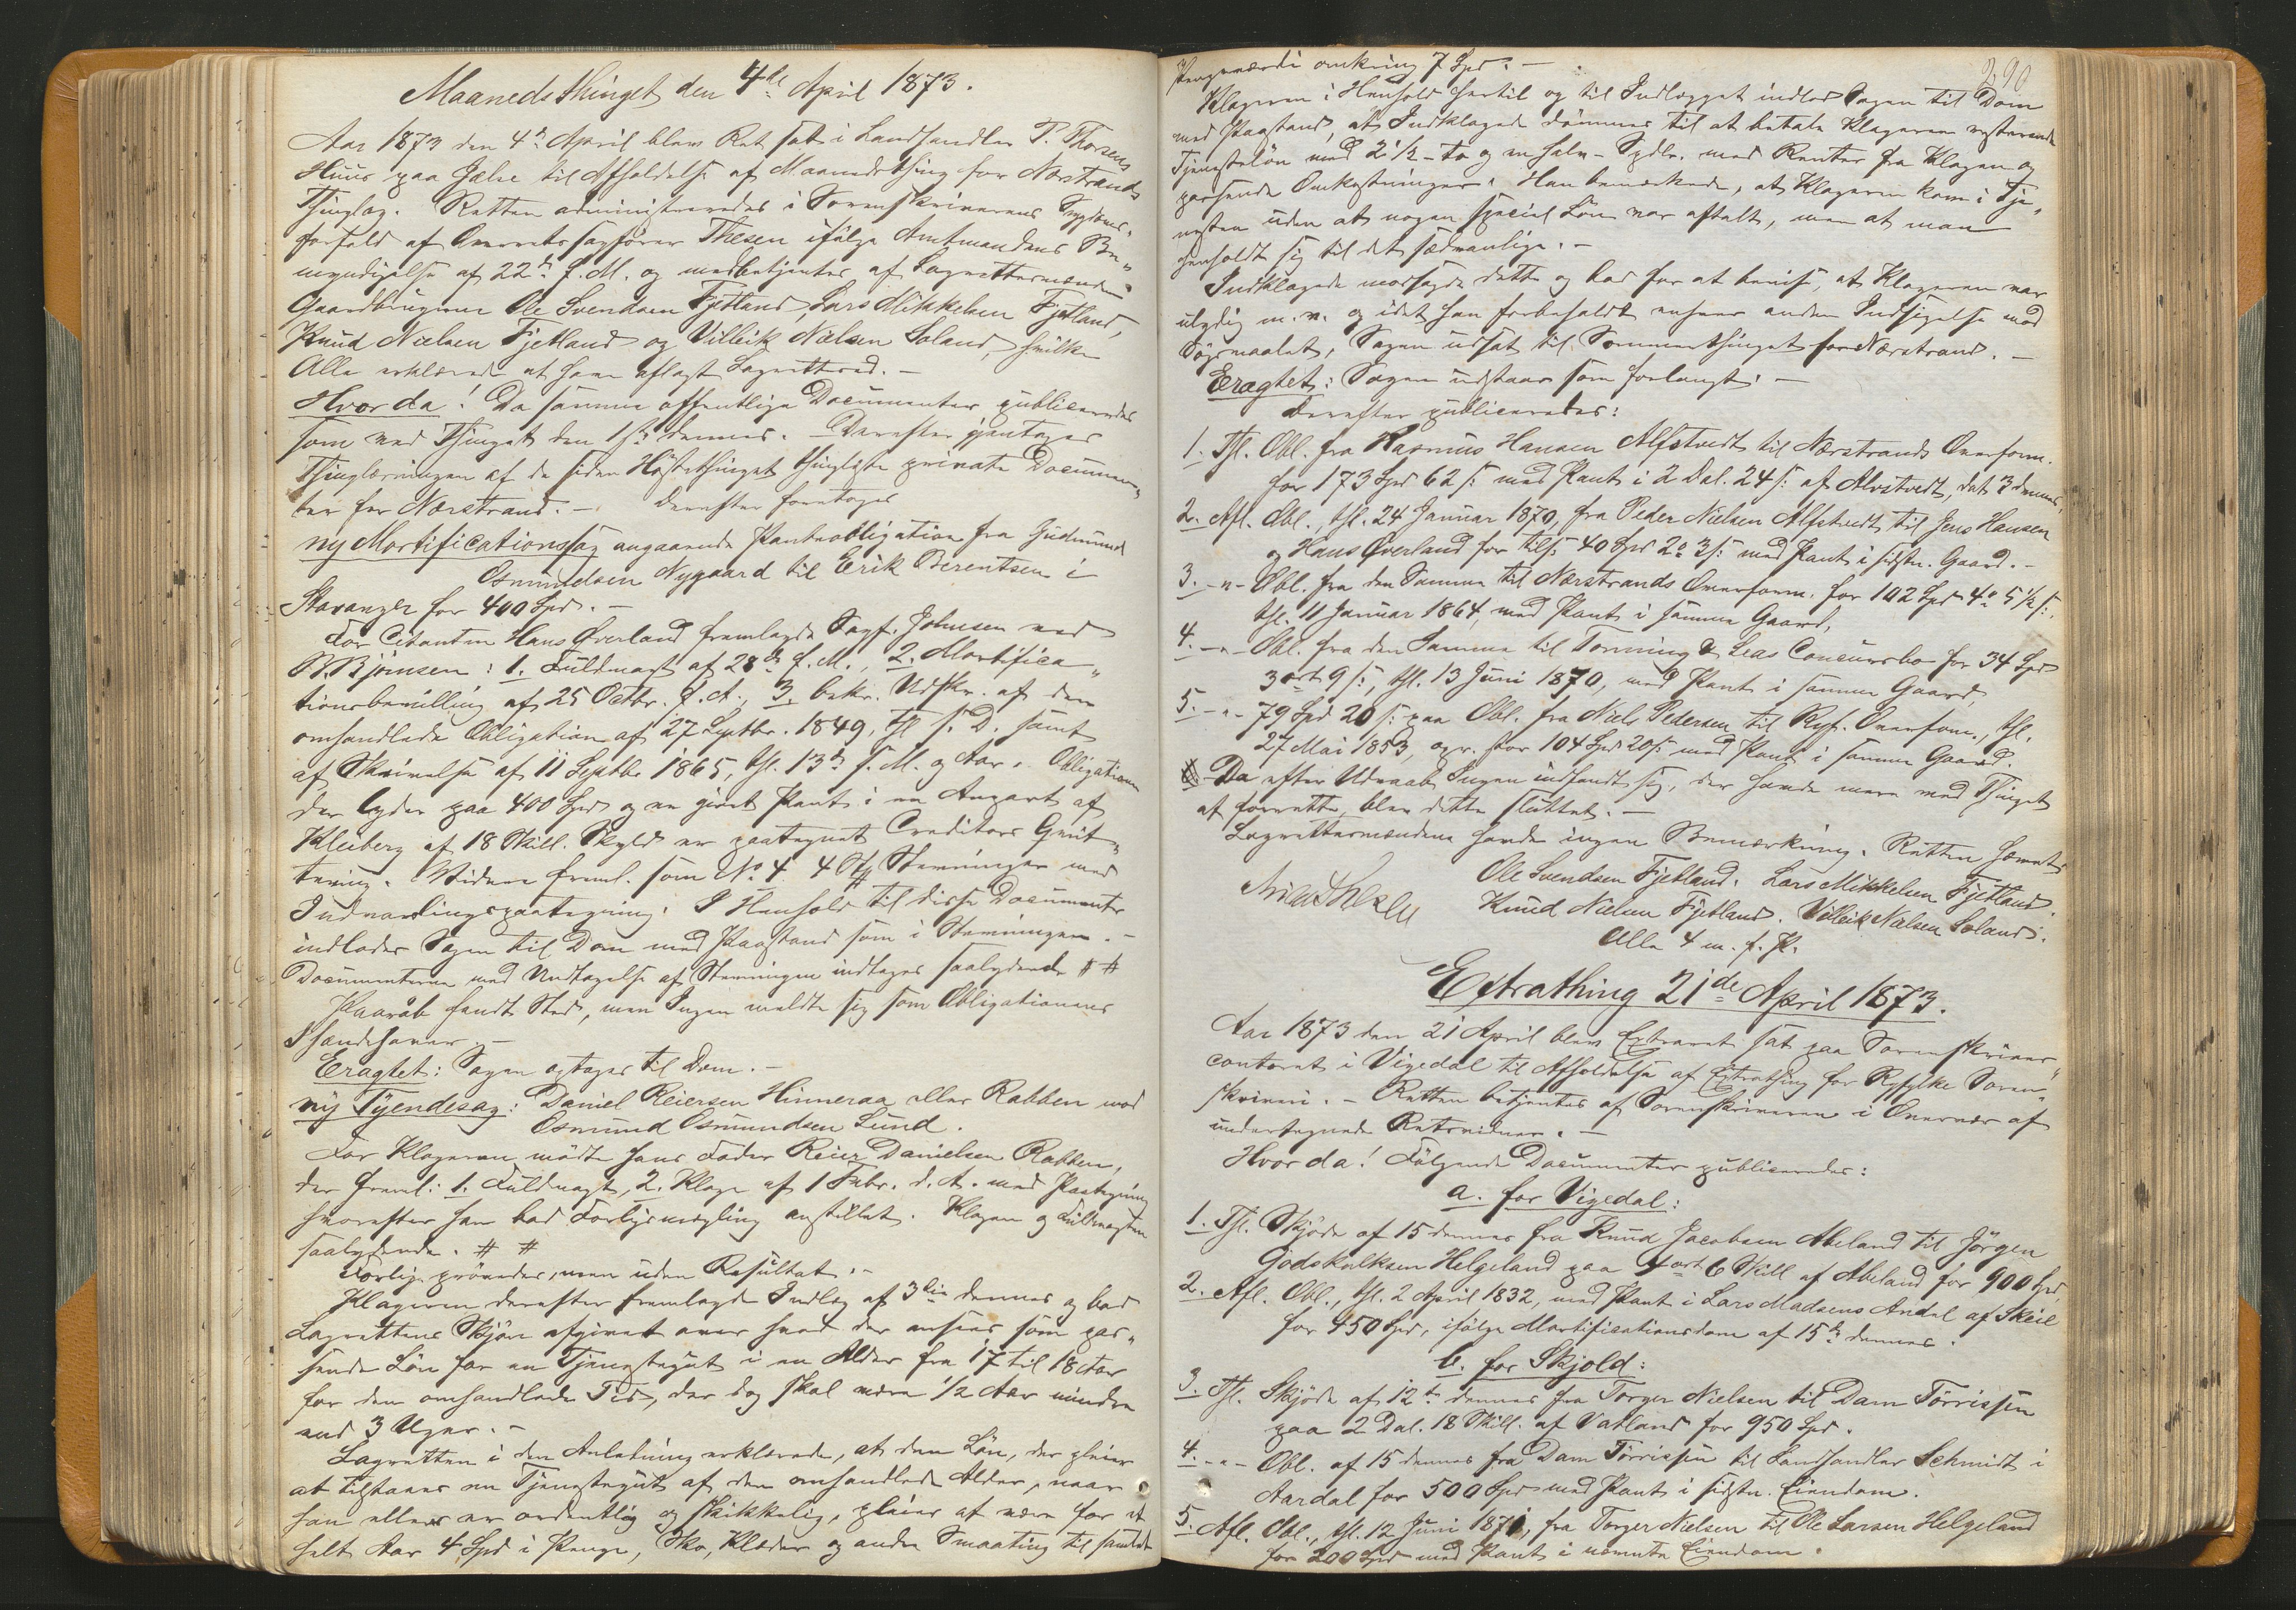 Maanedsthinget den 4de April 1873.
Aar 1873 den 4de April blev Ret sat i Landhandler T. Thorsens
Huus paa Jælse til Afholdelse af Maanedsthing for Nærstrands
Thinglag. Retten administreredes i Sorenskriverens Sygdoms-
forfald af Overretssagfører Thesen ifølge Amtmandens Be-
myndigelse af 22de f. M. og medbetjentes af Lagrettesmænd
Gaardbrugerne Ole Svendsen Fjetland, Lars Mikkelsen Fjetland,
Knud Nielsen Fjetland og Villeik Nielsen Soland, hvilke
Alle erklærede at have aflagt Lagretteed. -
Hvor da! Da samme offentlige Documenter publiceredes
som ved Thinget den 1ste dennes. - Derefter gjentoges
Thinglæsningen af de siden Høstethinget thinglyste private Documen-
ter for Nærstrand. - Derefter foretoges
ny Mortificationssag angaaende Pantobligation fra Gudmund
Osmundsen Nygaard til Erik Berentsen i
Stavanger for 400 Spd. -
For Citanten Hans Øverland fremlagde Sagf. Johnsen ved
B. Bjørnsen: 1. Fuldmagt af 28de f. M., 2. Mortifica-
tionsbevilling af 25 Octbr. f. A., 3. bekr. Udskr. af den
omhandlede Obligation af 27 Septbr. 1849, thl. s. D. samt
af Skrivelse af 11 Septbr 1865, thl. 13de s. M. og Aar. Obligationen
der lyder paa 400 Spd og er givet Pant i en Anpart af
Kleiberg af 18 Skill. Skyld er paategnet Creditors Qvit-
tering. Videre freml. som No 4 Stevningen med
Indvarslingspaategning. I Henhold til disse Documenter
indlodes Sagen til Dom med Paastand som i Stevningen. -
Documenterne med Undtagelse af Stevningen indtages saalydende # #
Paaraab fandt Sted, men Ingen meldte sig som Obligationens
Ihændehaver. -
Eragtet: Sagen optages til Dom. -
ny Tyendesag: Daniel Reiersen Hinneraa eller Rabben mod
Osmund Osmundsen Lund.
For Klageren mødte hans Fader Reier Danielsen Rabben,
der freml: 1. Fuldmagt, 2. Klage af 1 Febr. d. A. med Paategning
hvorefter han bad Forligsmægling anstillet. Klagen og Fuldmagten
saalydende. # #
Forlig prøvedes, men uden Resultat. -
Klageren derefter fremlagde Indlæg af 3die dennes og bad
Lagrettens Skjøn afgivet over hvad der ansees som pas-
sende Løn for en Tjenestegut i en Alder fra 17 til 18 Aar
for den omhandlede Tid, der dog skal være 1/2 Aar mindre
end 3 Uger. -
Lagretten i den Anledning erklærede, at den Løn, der pleier
at tilstaaes en Tjenestegut af den omhandlede Alder, naar
han ellers er ordentlig og skikkelig, pleier at være for et
helt Aar 4 Spd i Penge, Sko, Klæder og andre Smaating til samlet
290
Pengeværdi omkring 7 Spd. -
Klageren i Henhold hertil og til Indlægget indlod Sagen til Dom
med Paastand, at Indklagede dømmes til at betale Klageren resterende
Tjenesteløn med 2 1/2 - to og en halv - Spdlr. med Renter fra Klagen og
passende Omkostninger. Han bemærkede, at Klageren kom i Tje-
nesten uden at nogen special Løn var aftalt, men at man
henholdt sig til det sædvanlige. -
Indklagede modsagde dette og bad for at bevise, at Klageren var
ulydig m. v. og idet han forbeholdt enhver anden Indsigelse mod
Søgsmaalet, Sagen udsat til Sommerthinget for Nærstrand. -
Eragtet: Sagen udstaar som forlangt. -
Derefter publiceredes:
1. Thl. Obl. fra Rasmus Hansen Alfstvedt til Nærstrands Overform.
for 173 Spd 62 s: med Pant i 2 Dal. 24 s: af Alvstvedt, dat 3 dennes.
2. Afl. Obl., thl. 24 Januar 1870, fra Peder Nielsen Alfstvedt til Jens Hansen
og Hans Øverland for tils. 40 Spd 2 o 3 s: med Pant i sidstn. Gaard. -
3. - " - Obl. fra den Samme til Nærstrands Overform. for 102 Spd 4 o 5 1/2 s:,
thl. 11 Januar 1864, med Pant i samme Gaard.
4. - " - Obl. fra den Samme til Tonning & Leas Concursbo for 34 Spd
3 ort 9 s:, thl. 13 Juni 1870, med Pant i samme Gaard,
5. - " - 79 Spd 20 s: paa Obl. fra Niels Pedersen til Ryf. Overform., thl.
27 Mai 1853, opr. stor 104 Spd 20 s: med Pant i samme Gaard.
Da efter Udraab Ingen indfandt sig, der havde mere med Thinget
at forrette, blev dette sluttet. -
Lagrettesmændene havde ingen Bemærkning. Retten hævet.
Ole Svendsen Fjetland. Lars Mikkelsen Fjetland.
Knud Nielsen Fjetland. Villeik Nielsen Soland.
Alle 4 m. f. P.
Extrathing 21de April 1873.
Aar 1873 den 21 April blev Extraret sat paa Sorenskriver-
contoret i Vigedal til Afholdelse af Extrathing for Ryfylke Soren-
skriveri. - Retten betjentes af Sorenskriveren i Overvær af
undertegnede Retsvidner. -
Hvor da! Følgende Documenter publiceredes:
a. for Vigedal:
1. Thl. Skjøde af 15 dennes fra Knud Jacobsen Abeland til Jørgen
Godskalksen Helgeland paa 4 ort 6 Skill af Abeland for 900 Spd.
2. Afl. Obl., thl. 2 April 1832, med Pant i Lars Madsens Andel af Skeie
for 450 Spd, ifølge Mortificationsdom af 15de dennes.
b. for Skjold:
3. Thl. Skjøde af 12te dennes fra Torger Nielsen til Dam Tørrissen
paa 2 Dal. 18 Skill. af Vatland for 950 Spd.
4. - " - Obl. af 15 dennes fra Dam Tørrissen til Landhandler Schmidt i
Aardal for 500 Spd med Pant i sidstn. Eiendom.
5. Afl. Obl., thl. 12 Juni 1871, fra Torger Nielsen til Ole Larsen Helgeland
for 200 Spd med Pant i nævnte Eiendom.